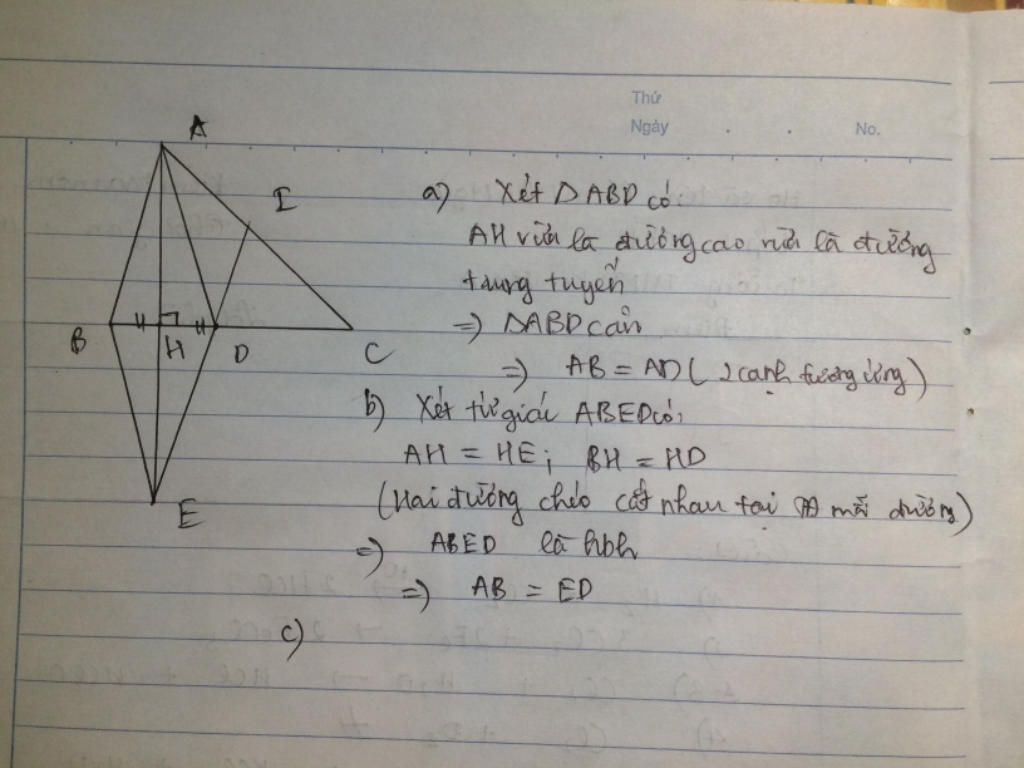 Thứ
Ngày . . No.
A
I
B H D C
E
a) Xét ΔABD có
AH vừa là đường cao vừa là đường
trung tuyến
=) ΔABD cân
=) AB = AD ( 2 cạnh tương ứng )
b) Xét tứ giác ABED có:
AH = HE ; BH = HD
(Hai đường chéo cắt nhau tại mỗi đường)
=) ABED là hbh
=) AB = ED
c)